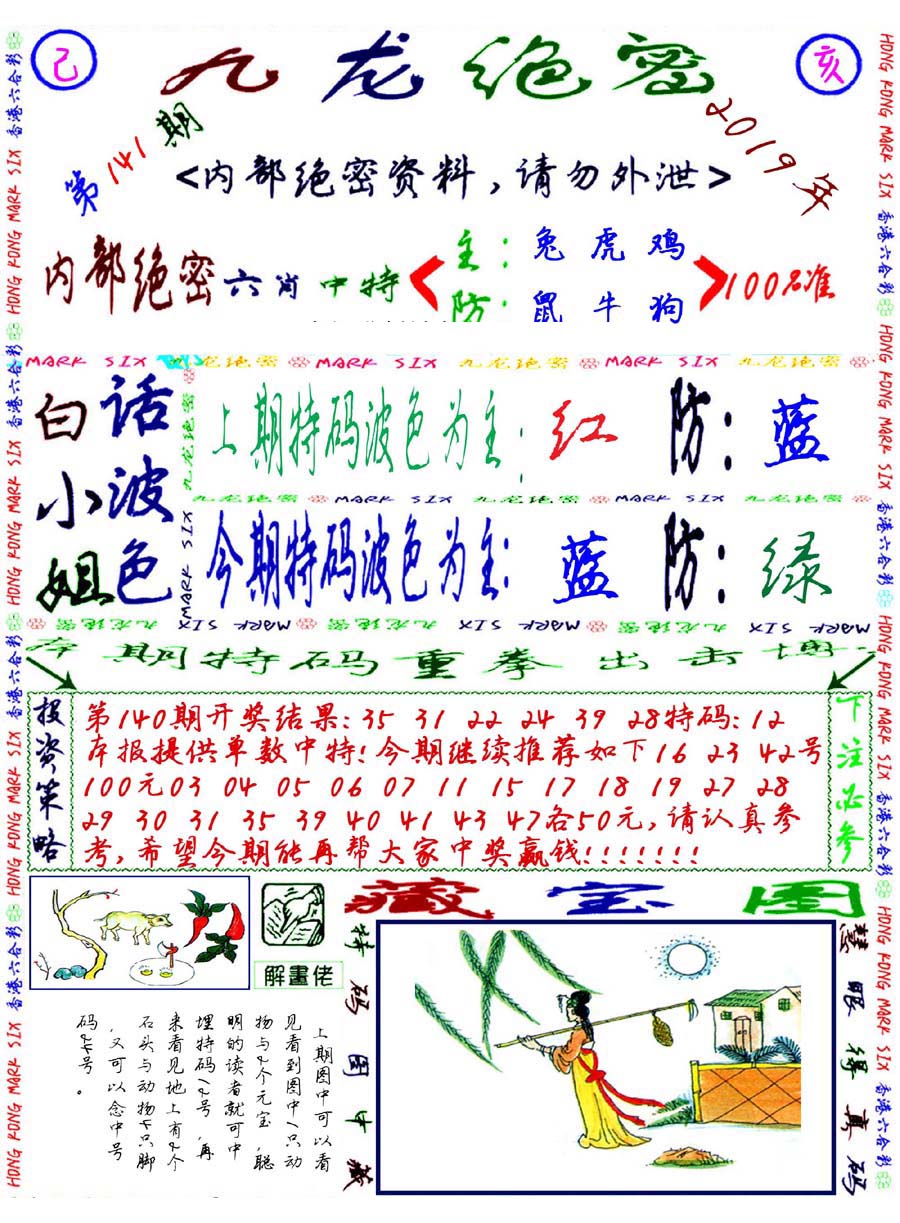 己
九龙绝密
亥
第141期
2019年
<内部绝密资料，请勿外泄>
内部绝密六肖中特
主：兔 虎 鸡
防：鼠 牛 狗
100%准
MARK SIX 九龙绝密 MARK SIX 九龙绝密 MARK SIX 九龙绝密
白话小姐
波色
上期特码波色为主：红 防：蓝
九龙绝密 MARK SIX 九龙绝密 MARK SIX 九龙绝密
今期特码波色为主：蓝 防：绿
九龙绝密 MARK SIX
MARK SIX 九龙绝密 MARK SIX 九龙绝密 MARK SIX 九龙绝密
本期特码重拳出击博
投资策略
第140期开奖结果：35 31 22 24 39 28特码：12
本报提供单数中特！今期继续推荐如下16 23 42号
100元03 04 05 06 07 11 15 17 18 19 27 28
29 30 31 35 39 40 41 43 47各50元，请认真参
考，希望今期能再帮大家中奖赢钱！！！！！！！
下注必参
解畫佬
藏宝图
特码图中藏
慧眼得真码
上期图中可以看
见看到图中1只动
物与2个元宝，聪
明的读者就可中
埋特码12号，再
来看见地上有2个
石头与动物4只脚
，又可以念中号
码24号。
香港六合彩 HONG KONG MARK SIX 香港六合彩 HONG KONG MARK SIX 香港六合彩 HONG KONG MARK SIX 香港六合彩 HONG KONG MARK SIX
HONG KONG MARK SIX 香港六合彩 HONG KONG MARK SIX 香港六合彩 HONG KONG MARK SIX 香港六合彩 HONG KONG MARK SIX 香港六合彩